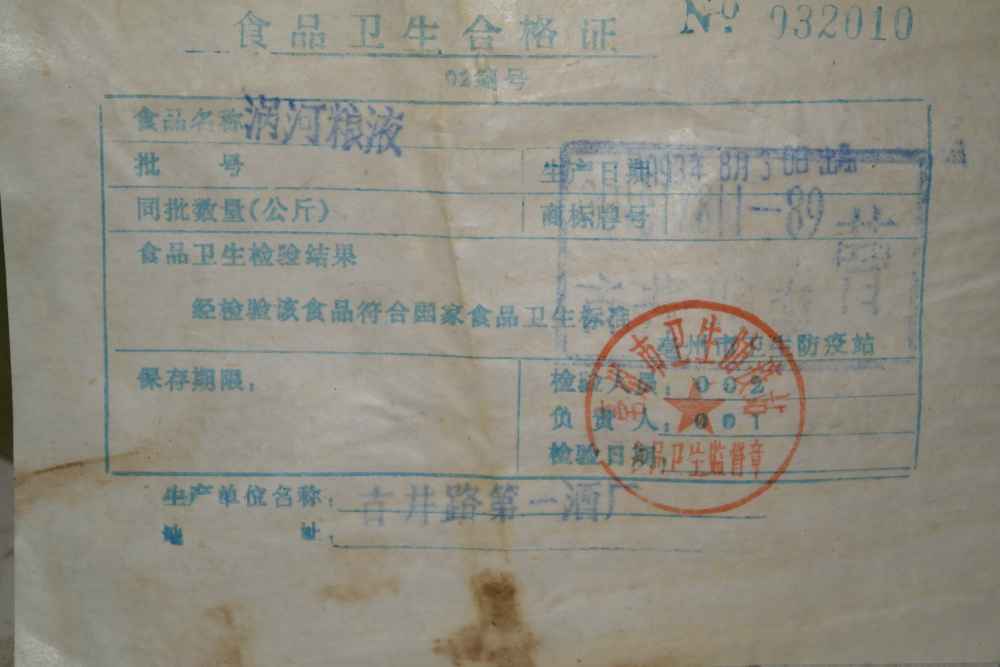 食品卫生合格证 № 932010
02 号
食品名称 涡河粮液
批 号 生产日期 1993年8月30日
同批数量(公斤) 商标牌号 11-89
食品卫生检验结果
经检验该食品符合国家食品卫生标准
亳州市卫生防疫站
保存期限: 检验人员: 002
负责人: 001
检验日期:
市卫生防疫站
食品卫生监督章
生产单位名称: 古井路第一酒厂
地 址: